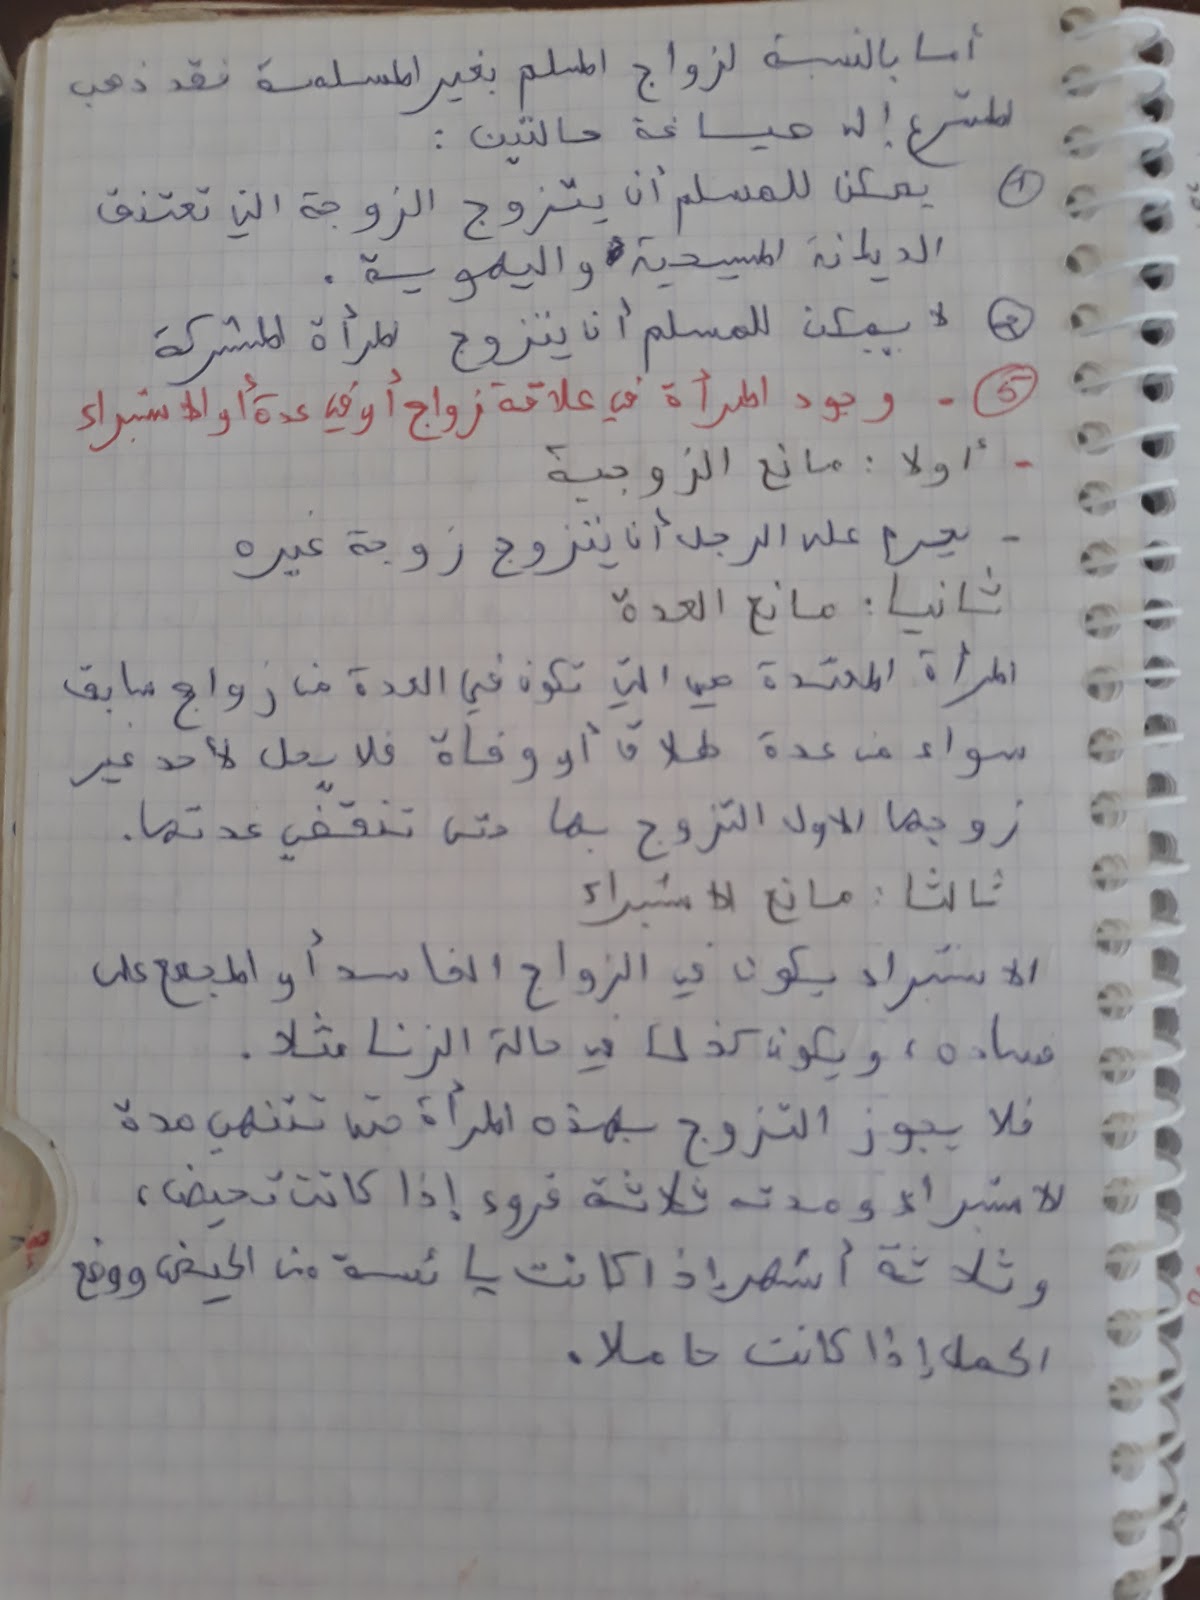 أما بالنسبة لزواج المسلم بغير المسلمة فقد ذهب
المشرع إلى صياغة حالتين :
① يمكن للمسلم أن يتزوج الزوجة التي تعتنق
الديانة المسيحية واليهودية .
② لا يمكن للمسلم أن يتزوج المرأة المشركة
⑤ - وجود المرأة في علاقة زواج أو في عدة أو الاستبراء
- أولا : مانع الزوجية
- يحرم على الرجل أن يتزوج زوجة غيره
ثانيا : مانع العدة
المرأة المعتدة هي التي تكون في العدة من زواج سابق
سواء من عدة طلاق أو وفاة فلا يحل لأحد غير
زوجها الاول التزوج بها حتى تنقضي عدتها.
ثالثا : مانع الاستبراء
الاستبراء يكون في الزواج الفاسد أو المجمع على
فساده ، ويكون كذلك في حالة الزنا مثلا .
فلا يجوز التزوج بهذه المرأة حتى تنتهي مدة
الاستبراء ومدته ثلاثة قروء إذا كانت تحيض ،
وثلاثة أشهر إذا كانت يائسة من الحيض ووضع
الحمل إذا كانت حاملا .